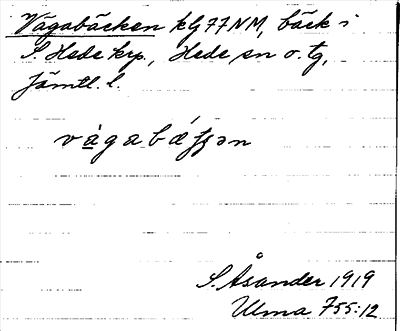 Vågabäcken kG77NM, bäck i
S. Hede krp., Hede sn o. tg,
Jämtl. l.
S. Åsander 1919
Ulma 755:12